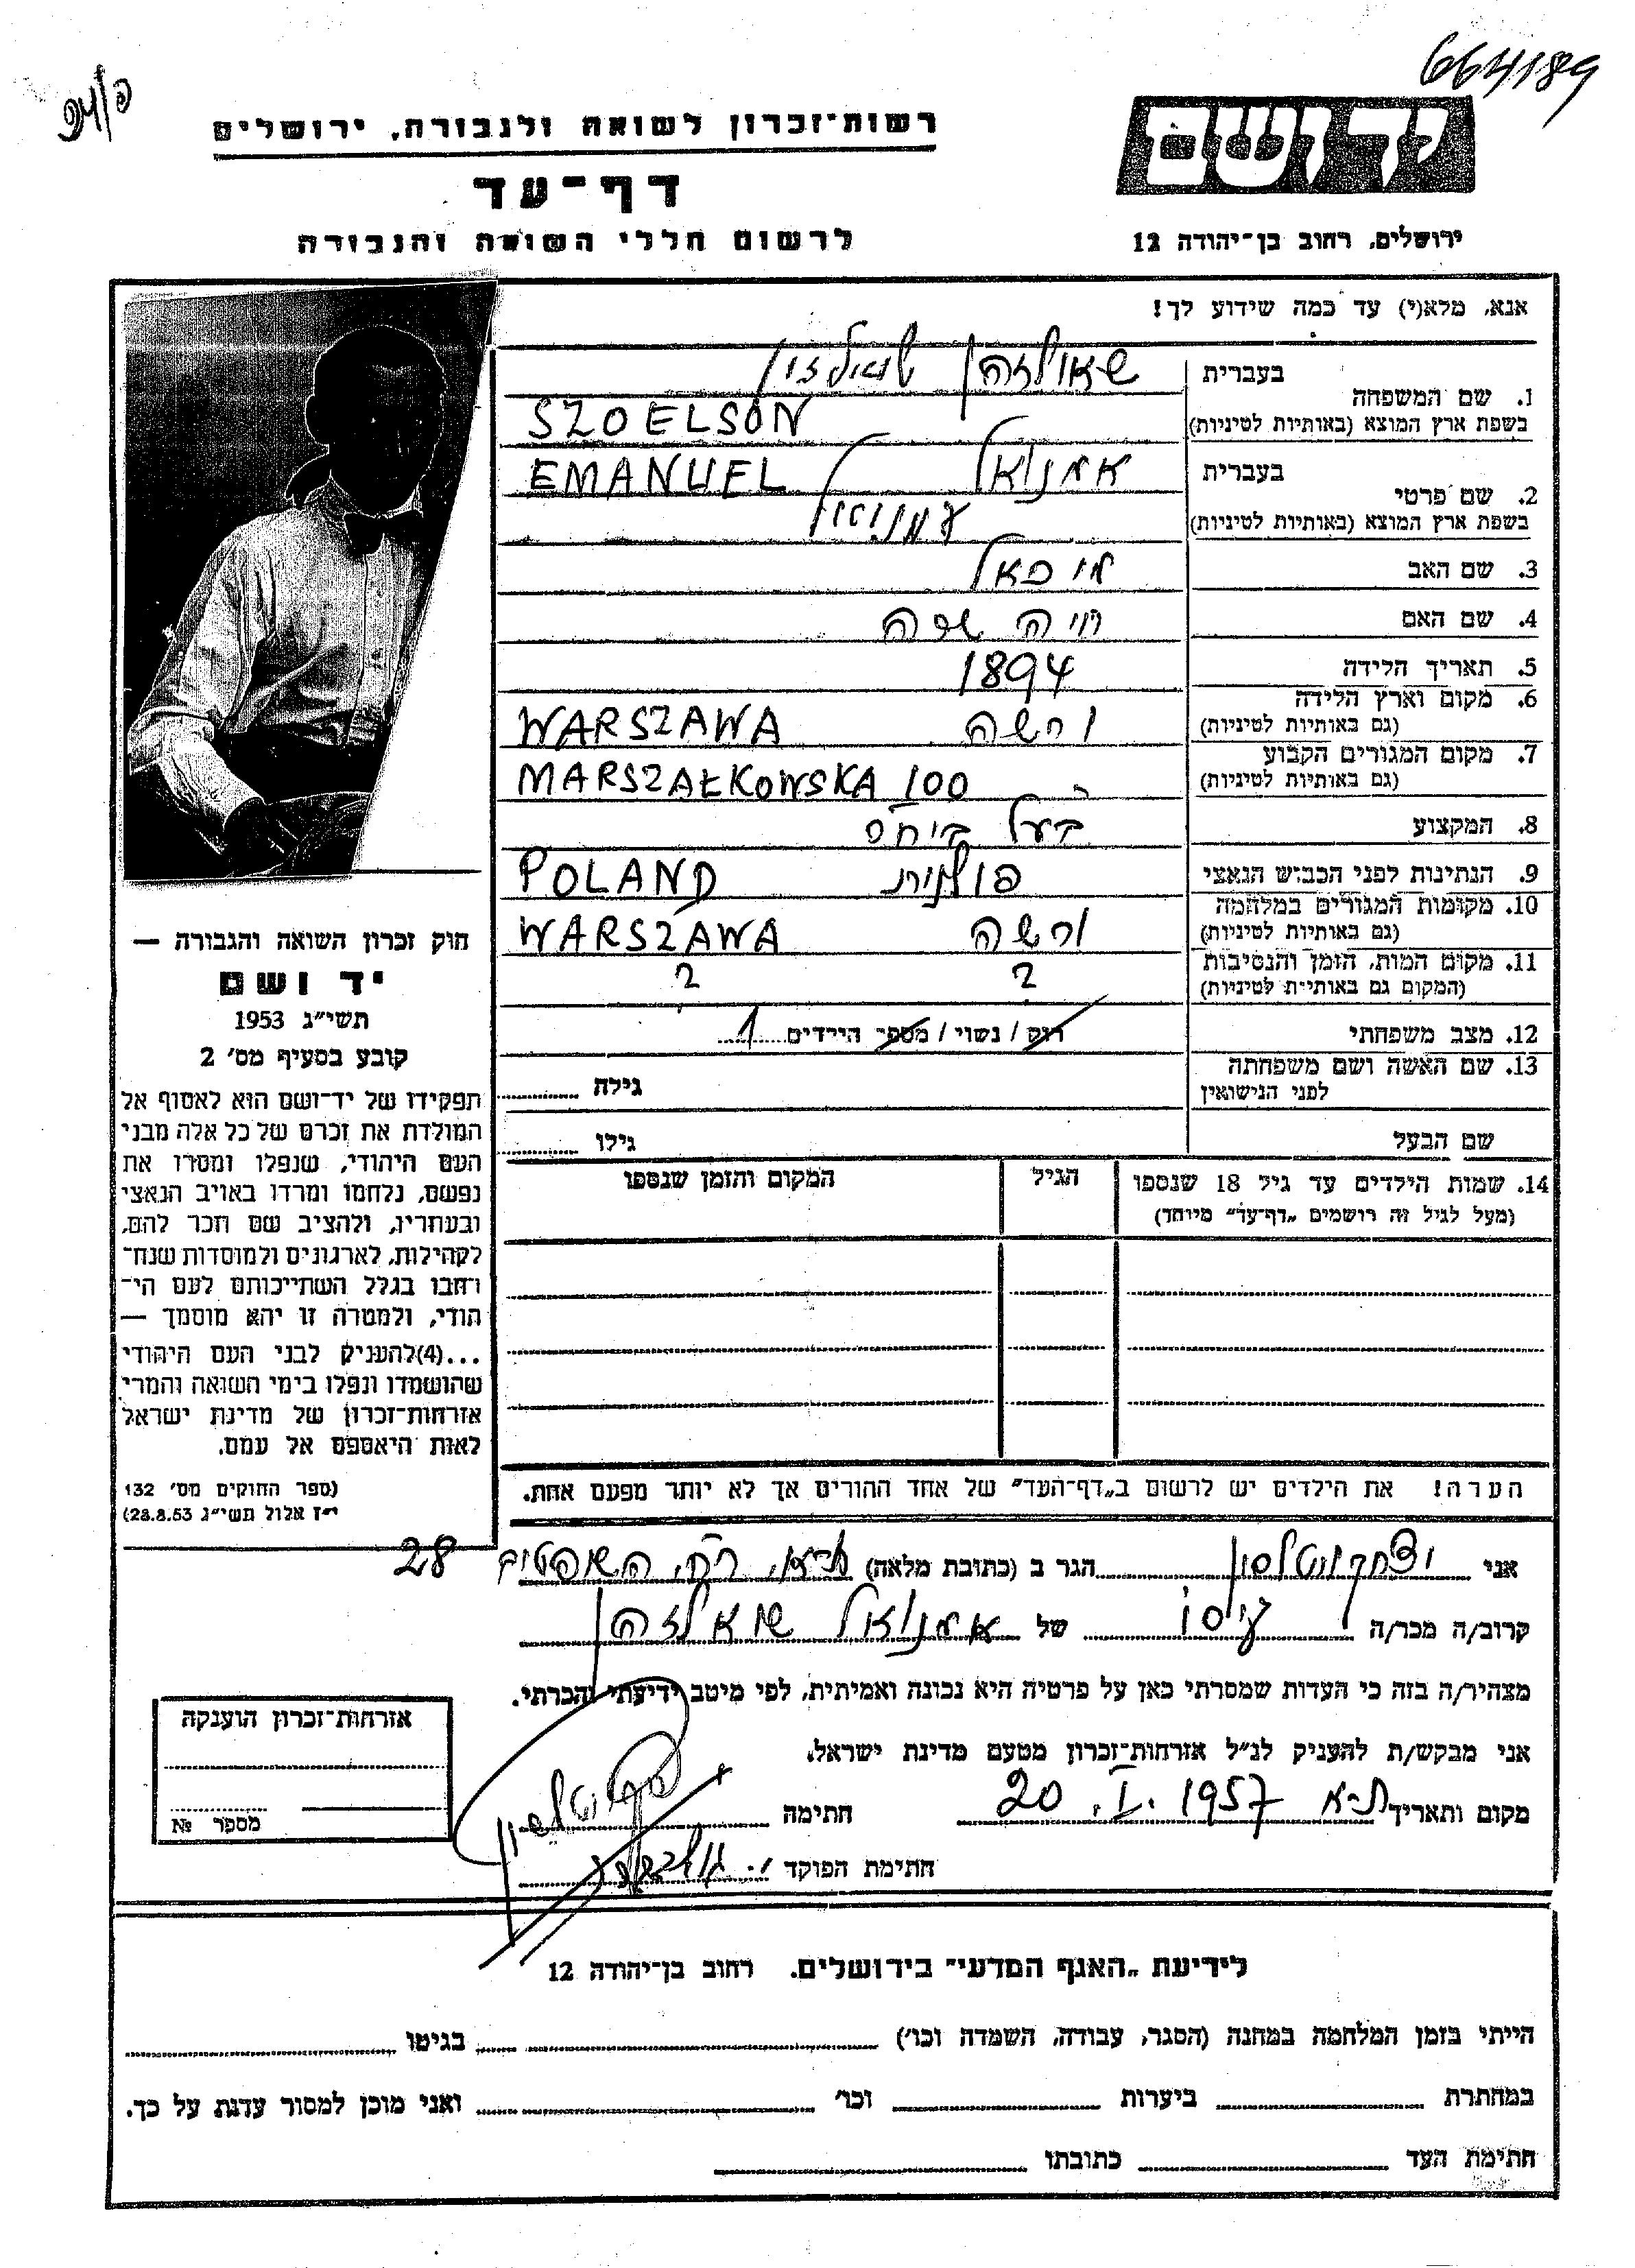 664189
יד ושם
רשות־זכרון לשואה ולגבורה, ירושלים
דף־עד
לרשום חללי השואה והגבורה
ירושלים, רחוב בן־יהודה 12
אנא, מלא(י) עד כמה שידוע לך!
1. שם המשפחה
בעברית
בשפת ארץ המוצא (באותיות לטיניות)
SZOELSON
2. שם פרטי
בעברית עמנואל
בשפת ארץ המוצא (באותיות לטיניות)
EMANUEL
3. שם האב מיכאל
4. שם האם חיה שרה
5. תאריך הלידה 1894
6. מקום וארץ הלידה
(גם באותיות לטיניות) ורשה WARSZAWA
7. מקום המגורים הקבוע
(גם באותיות לטיניות) MARSZAŁKOWSKA 100
8. המקצוע בעל
9. הנתינות לפני הכבוש הנאצי פולנית POLAND
10. מקומות המגורים במלחמה
(גם באותיות לטיניות) ורשה WARSZAWA
11. מקום המות, הזמן והנסיבות
(המקום גם באותיות לטיניות) ? ?
12. מצב משפחתי רוק / נשוי / מספר הילדים 1
13. שם האשה ושם משפחתה
לפני הנישואין גילה
שם הבעל גילו
14. שמות הילדים עד גיל 18 שנספו הגיל המקום והזמן שנספו
(מעל לגיל זה רושמים „דף־עד” מיוחד)
הערה! את הילדים יש לרשום ב„דף־העד” של אחד ההורים אך לא יותר מפעם אחת.
חוק זכרון השואה והגבורה —
יד ושם
תשי״ג 1953
קובע בסעיף מס׳ 2
תפקידו של יד־ושם הוא לאסוף אל
המולדת את זכרם של כל אלה מבני
העם היהודי, שנפלו ומסרו את
נפשם, נלחמו ומרדו באויב הנאצי
ובעוזריו, ולהציב שם וזכר להם,
לקהילות, לארגונים ולמוסדות שנח־
רבו בגלל השתייכותם לעם הי־
הודי, ולמטרה זו יהא מוסמך —
...(4)להעניק לבני העם היהודי
שהושמדו ונפלו בימי השואה והמרי
אזרחות־זכרון של מדינת ישראל
לאות היאספם אל עמם.
(ספר החוקים מס׳ 132
י״ז אלול תשי״ג 28.8.53)
אני יצחק הגר ב (כתובת מלאה) ת״א, רח׳ השופטים 28
קרוב/ה מכר/ה גיסו של עמנואל
מצהיר/ה בזה כי העדות שמסרתי כאן על פרטיה היא נכונה ואמיתית, לפי מיטב ידיעתי והכרתי.
אני מבקש/ת להעניק לנ״ל אזרחות־זכרון מטעם מדינת ישראל.
מקום ותאריך ת״א 20. I. 1957 חתימה
חתימת הפוקד
אזרחות־זכרון הוענקה
מספר №
לידיעת „האגף המדעי” בירושלים. רחוב בן־יהודה 12
הייתי בזמן המלחמה במחנה (הסגר, עבודה, השמדה וכו׳) בגיטו
במחתרת ביערות וכו׳ ואני מוכן למסור עדות על כך.
חתימת העד כתובתו